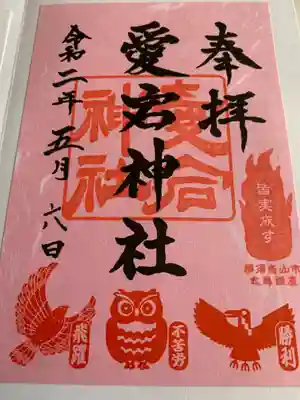 奉拝
愛宕神社
令和二年五月六日
愛宕
神社
皆実成す
那須烏山市
飛翔
不苦労
勝利